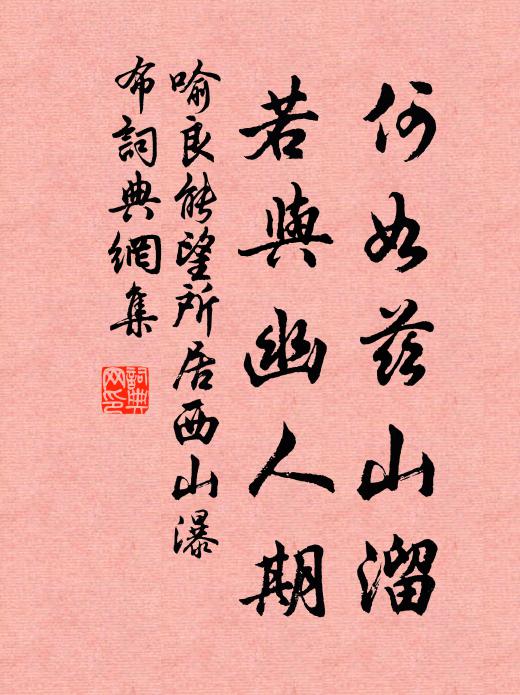 何如茲山溜
若與幽人期
喻良能望所居西山瀑
布詞典網集
詞典
网印